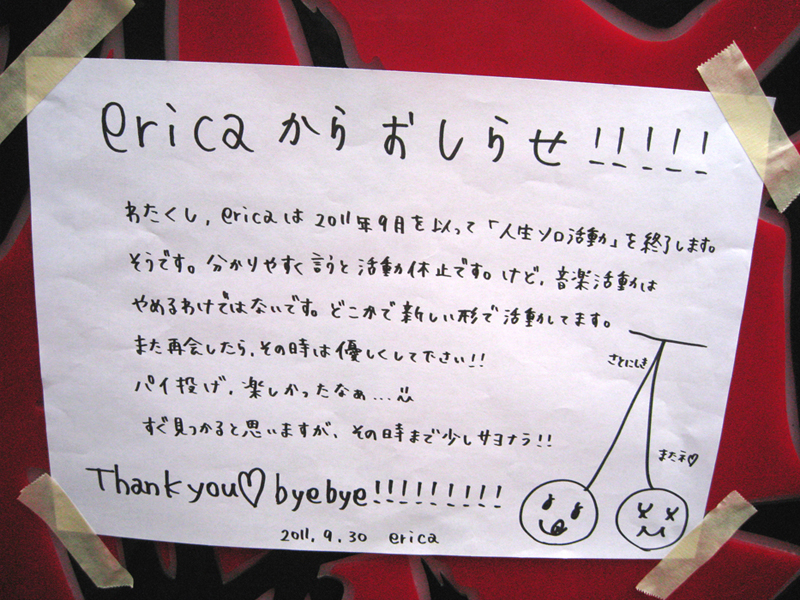 ericaからおしらせ!!!!!
わたくし,ericaは2011年9月を以って「人生ソロ活動」を終了します。
そうです。分かりやすく言うと活動休止です。けど,音楽活動は
やめるわけではないです。どこかで新しい形で活動してます。
また再会したら,その時は優しくして下さい!!
パイ投げ,楽しかったなぁ...
すぐ見つかると思いますが、その時まで少しサヨナラ!!
さとにしき
またネ♡
Thank you♡byebye!!!!!!!!!
2011.9.30 erica